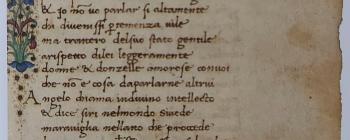 & io nō uo parlar si altamente
cħ diuenissi ꝑ temenza uile
ma tractero del suo stato gentile
arispetto dilei leggeramente
donne & donzelle amorose con uoi
che nō e cosa da parlarne altrui
Angelo chiama in diuino intellecto
& dice siri nelmondo si uede
marauiglia nellatto che procede